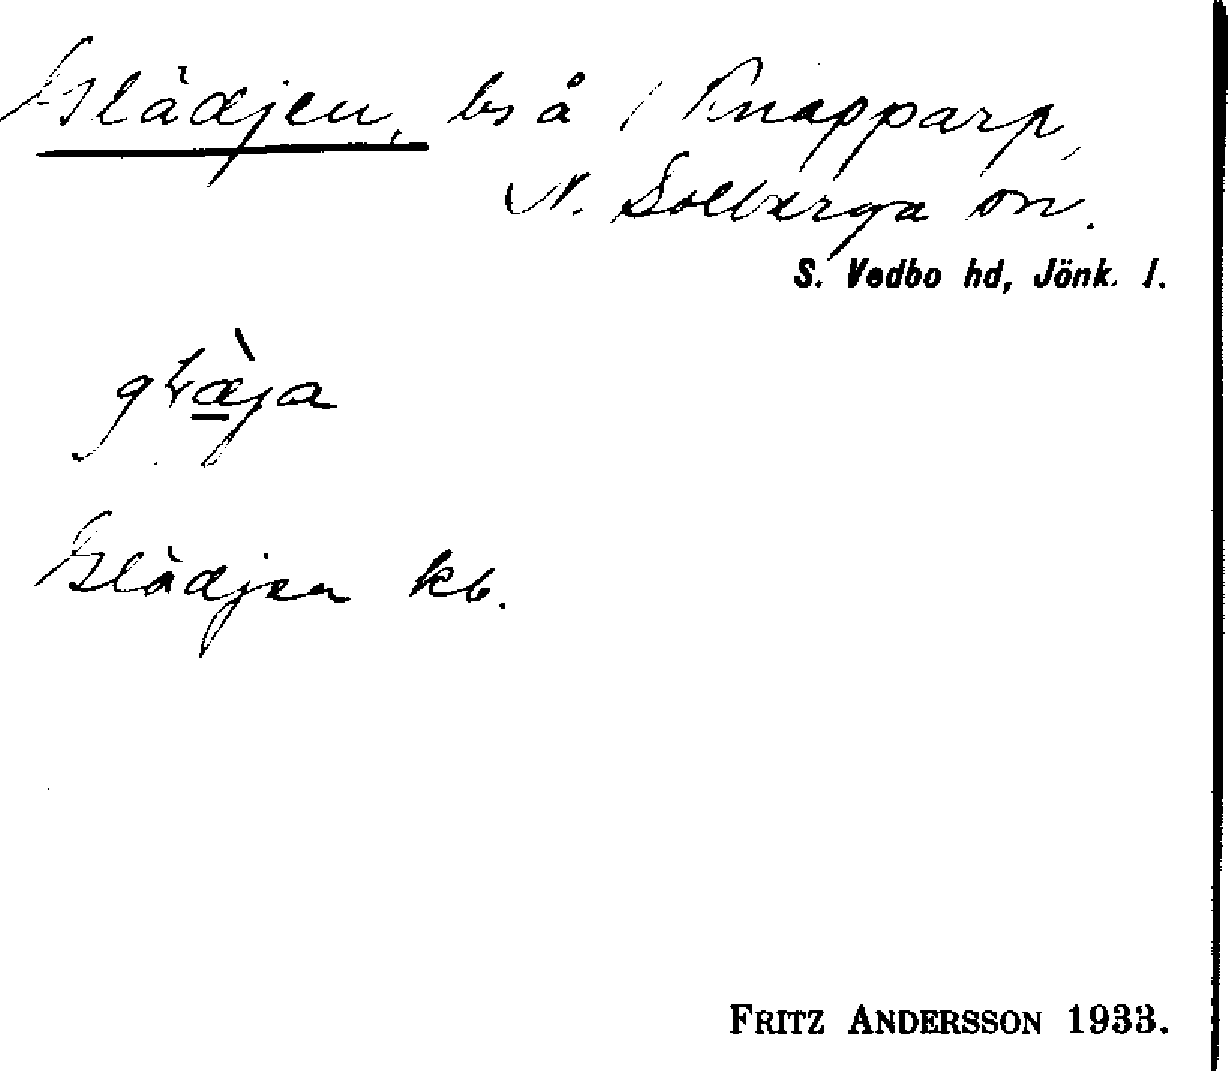 Glädjen, bs å 1 Knapparp,
N. Solberga sn.
S. Vedbo hd, Jönk. l.
Glädjen kb.
FRITZ ANDERSSON 1933.